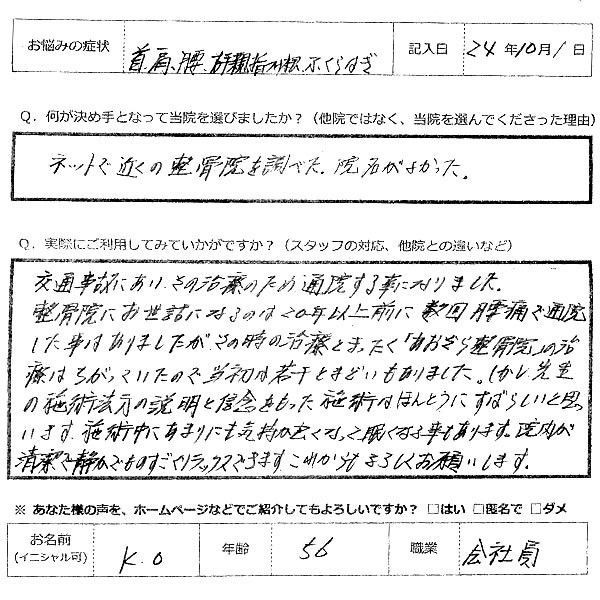 お悩みの症状 首、肩、腰、右親指の付根、ふくらはぎ 記入日 24年10月1日
Q．何が決め手となって当院を選びましたか？（他院ではなく、当院を選んでくださった理由）
ネットで近くの整骨院を調べた。院名がよかった。
Q．実際にご利用してみていかがですか？（スタッフの対応、他院との違いなど）
交通事故にあい、その治療のため通院する事になりました。
整骨院にお世話になるのは20年以上前に数回腰痛で通院
した事はありましたがその時の治療とまったく「あおぞら整骨院」の治
療はちがっていたので当初は若干とまどいもありました。しかし先生
の施術法の説明と信念をもった施術はほんとうにすばらしいと思
います。施術中にあまりにも気持が良くなって眠くなる事もあります。院内が
清潔で静かでものすごくリラックスできます。これからもよろしくお願いします。
※ あなた様の声を、ホームページなどでご紹介してもよろしいですか？ □はい □匿名で □ダメ
お名前 (イニシャル可) K.O 年齢 56 職業 会社員